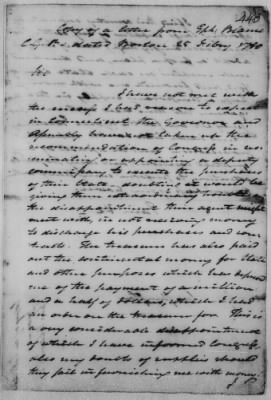 448
Copy of a letter from Eph. Blaine
C.G.P. dated Boston 25 Feby 1780
Sir
I have not met with
the success I had reason to expect
in Connecticut the Governor and
Assembly have not taken up the
recommendation of Congress in no-
minating or appointing a deputy
commissary to execute the purchases
of their State
giving them extraordinary trouble
the disappointment their agent might
meet with, in not receiving money
to discharge his purchases and con-
tracts. The treasurer has also paid
out the continental money for State
and other purposes which has deprived
me of the payment of a million
and a half of dollars, which I had
an order on the treasurer for. This is
a very considerable disappointment
of which I have informed Congress,
also my doubts of supplies should
they fail in furnishing me with money.